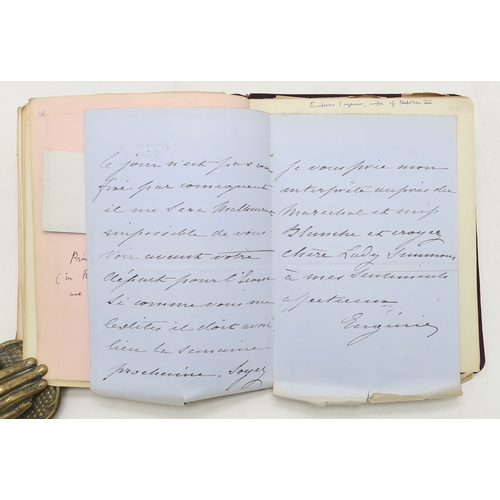 Empress Eugenie, wife of Napoleon III
le jour n'est pas
fixé par consequent
il me sera
impossible de vous
voir avant votre
départ pour l'
Si comme vous me
le dites il doit avoir
lieu la semaine
prochaine. Soyez
Je vous prie mon
interprète auprès du
Marechal et miss
Blanche et croyez
chère Lady Simmons
à mes Sentiments
affectueux
Eugénie
(in